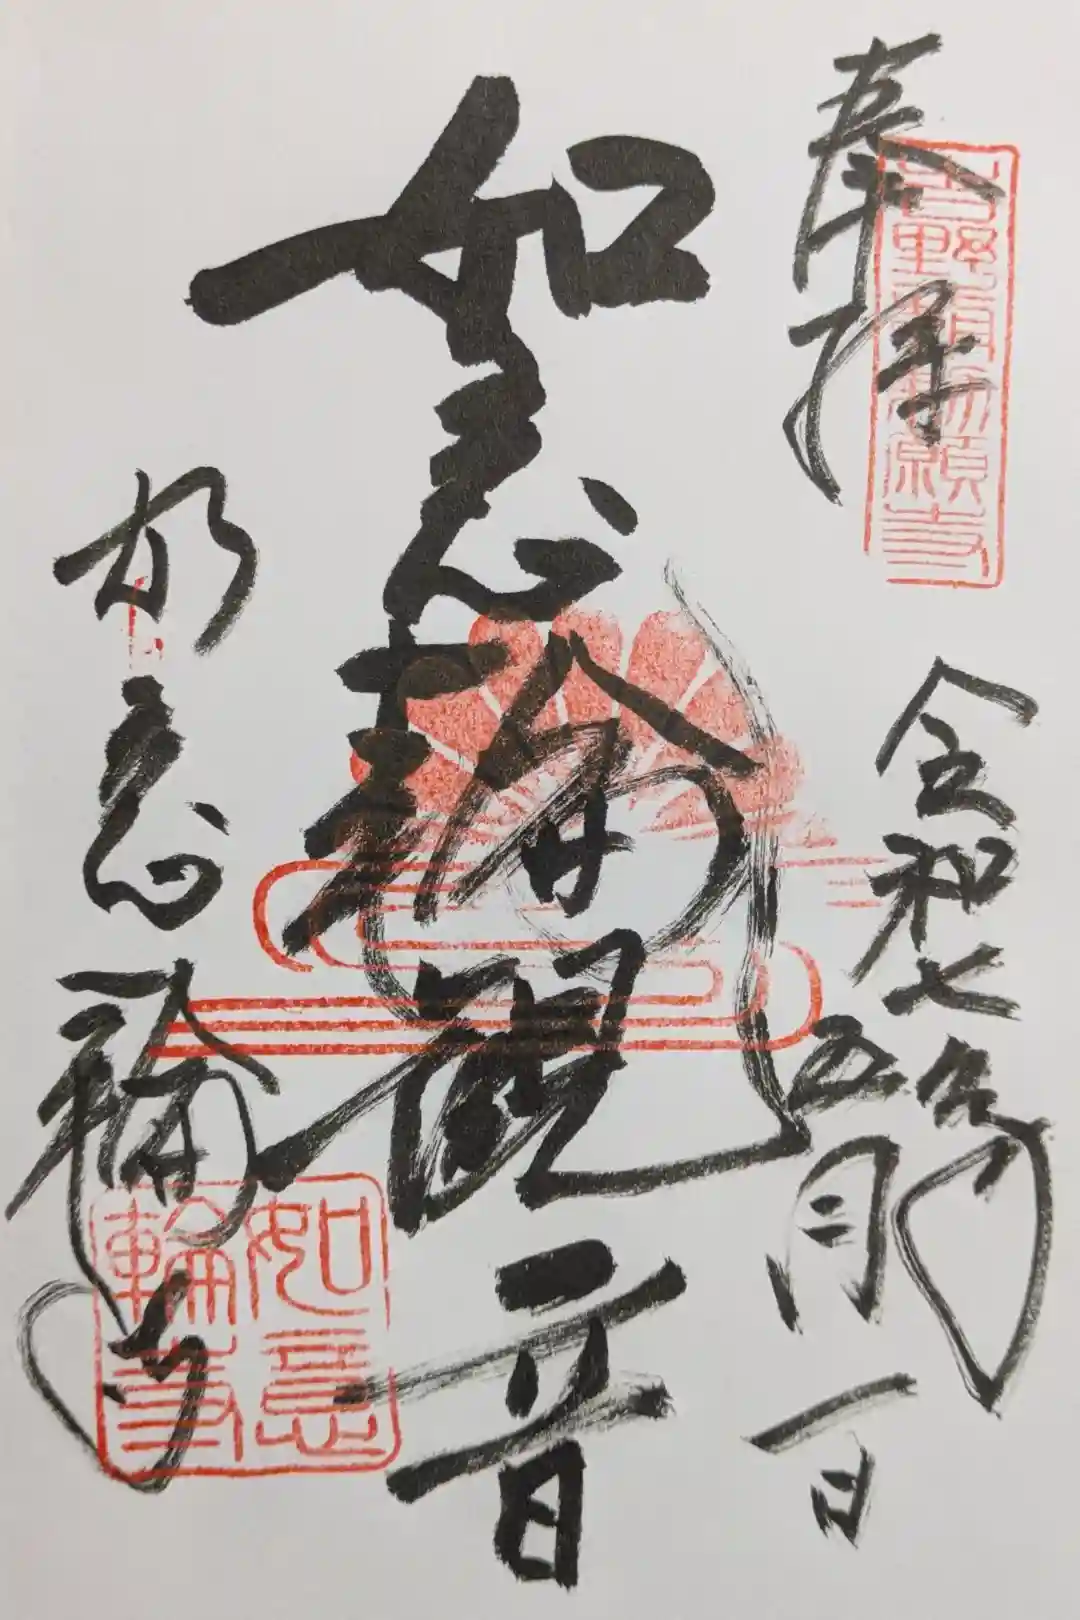 奉拝
吉野 勅願寺
令和七年
五月一日
如意輪観音
如意輪寺
如意輪寺